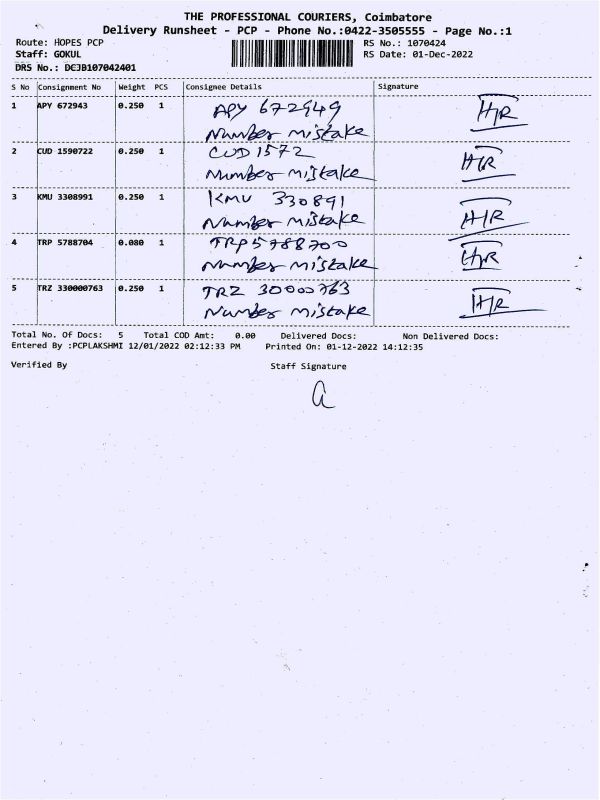 THE PROFESSIONAL COURIERS, Coimbatore
Delivery Runsheet - PCP - Phone No.:0422-3505555 - Page No.:1
Route: HOPES PCP RS No.: 1070424
Staff: GOKUL RS Date: 01-Dec-2022
DRS No.: DCJB107042401
S No Consignment No Weight PCS Consignee Details Signature
1 APY 672943 0.250 1 APY 672949 HR
Number mistake
2 CUD 1590722 0.250 1 CUD 1572 HR
Number mistake
3 KMU 3308991 0.250 1 KMU 330891 HR
Number mistake
4 TRP 5788704 0.080 1 TRP 5788700 HR
Number mistake
5 TRZ 330000763 0.250 1 TRZ 30000763 HR
Number mistake
Total No. Of Docs: 5 Total COD Amt: 0.00 Delivered Docs: Non Delivered Docs:
Entered By :PCPLAKSHMI 12/01/2022 02:12:33 PM Printed On: 01-12-2022 14:12:35
Verified By Staff Signature